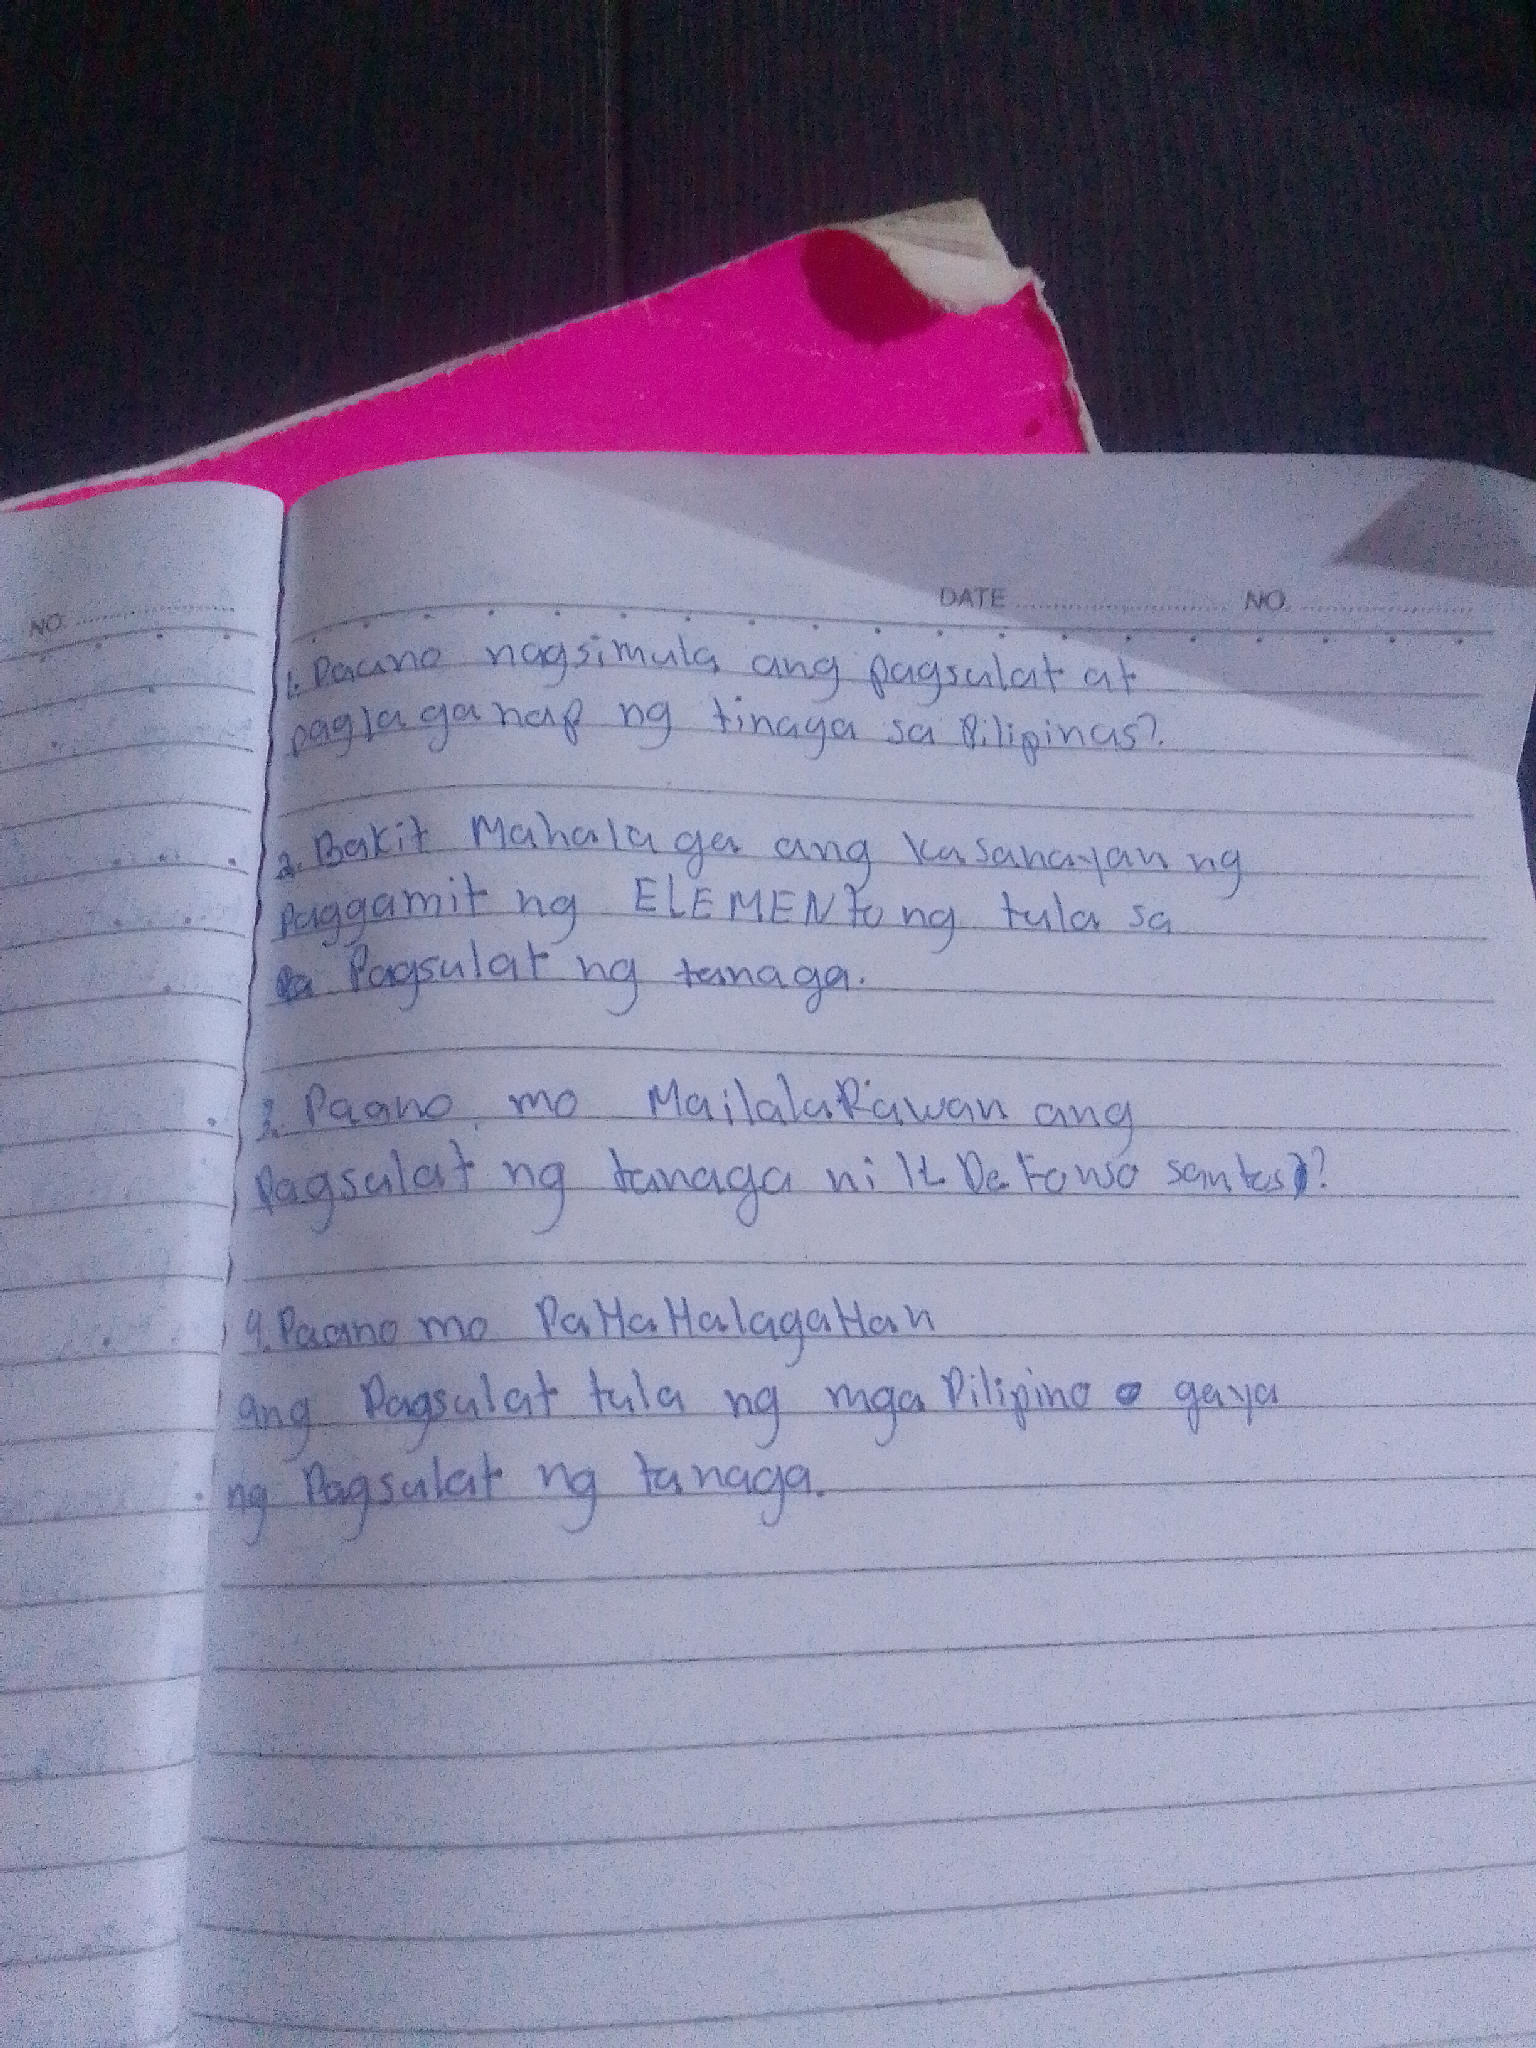 NO.
DATE NO.
1. Paano nagsimula ang pagsulat at
paglaganap ng tinaga sa Pilipinas?
2. Bakit Mahalaga ang kasanayan ng
Paggamit ng ELEMENTo ng tula sa
Pagsulat ng tanaga.
3. Paano mo MailalaRawan ang
Pagsulat ng tanaga ni IL DeFonso santos?
4. Paano mo PaHaHalagaHan
ang Pagsulat tula ng mga Pilipino gaya
ng Pagsulat ng tanaga.